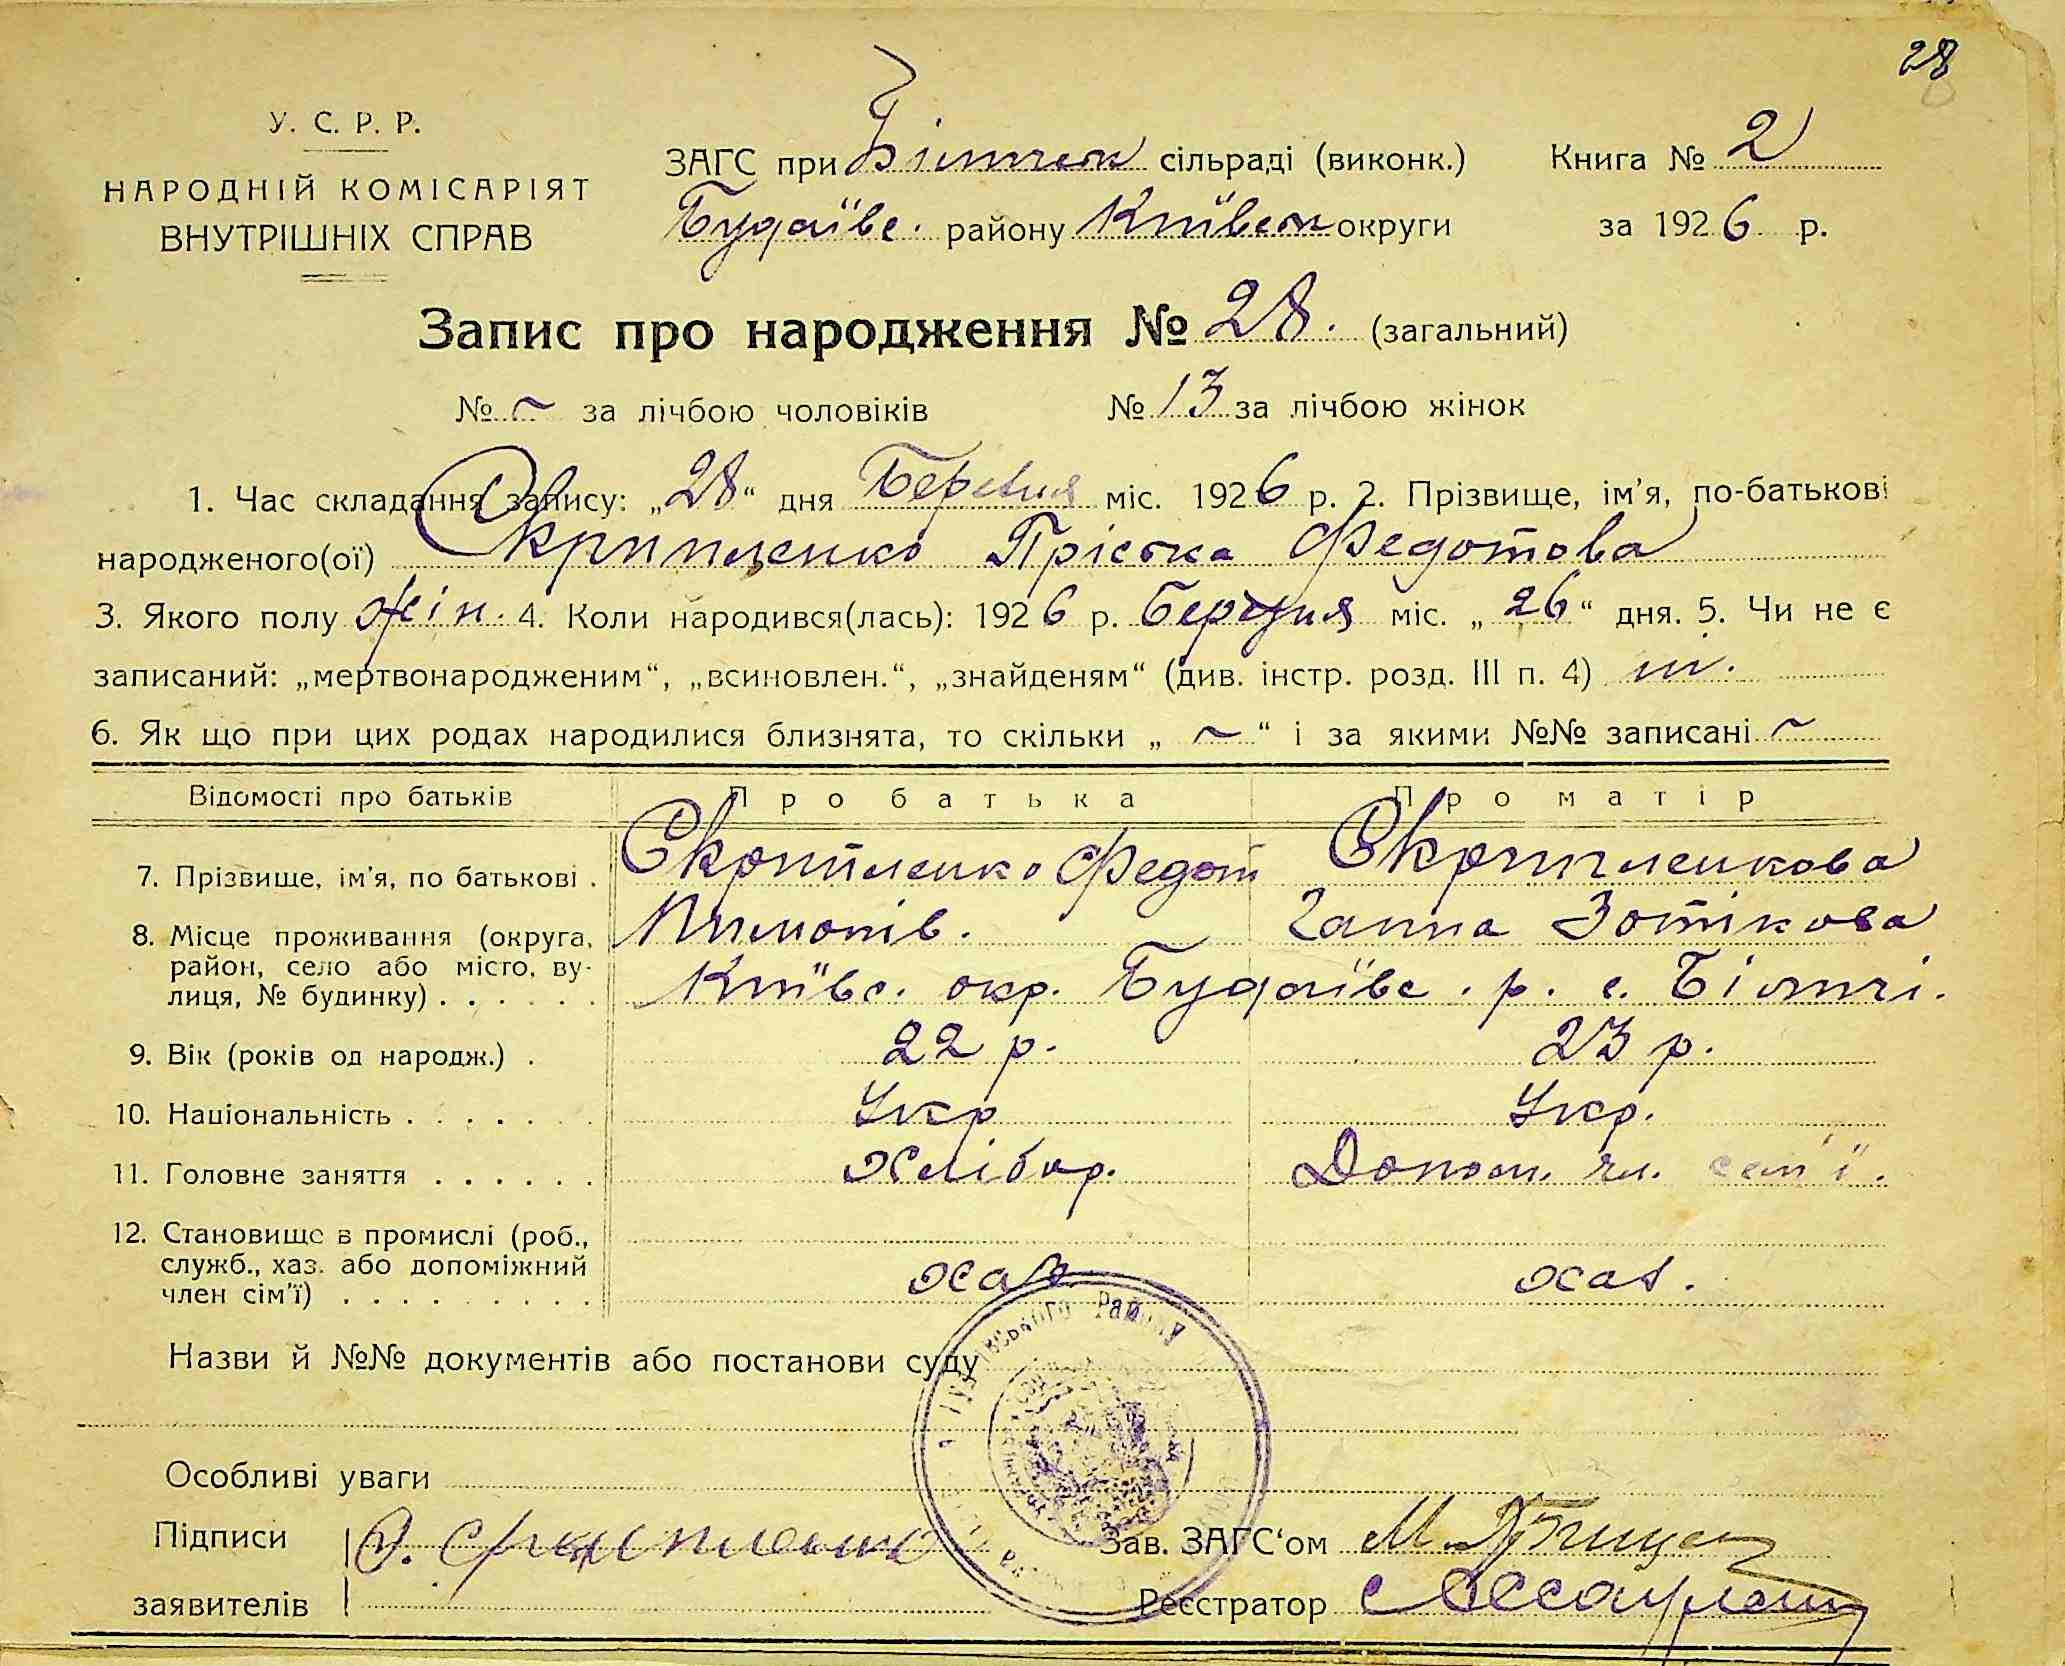 28
У. С. Р. Р.
НАРОДНІЙ КОМІСАРІЯТ
ВНУТРІШНІХ СПРАВ
ЗАГС при Білицьк сільраді (виконк.)
Будаївс. району Київськ округи
Книга № 2
за 1926 р.
Запис про народження № 28. (загальний)
№ ~ за лічбою чоловіків № 13 за лічбою жінок
1. Час складання запису: „28“ дня Березня міс. 1926 р. 2. Прізвище, ім'я, по-батькові
народженого(ої) Скрипленко Пріська Федотова
3. Якого полу жін. 4. Коли народився(лась): 1926 р. Березня міс. „26“ дня. 5. Чи не є
записаний: „мертвонародженим“, „всиновлен.“, „знайденям“ (див. інстр. розд. III п. 4) ні.
6. Як що при цих родах народилися близнята, то скільки „~“ і за якими №№ записані ~
Відомості про батьків Про батька Про матір
7. Прізвище, ім'я, по батькові . Скрипленко Федот Скрипленкова
Пилипів. Ганна Зотікова
8. Місце проживання (округа,
район, село або місто, ву-
лиця, № будинку) . . . . . . Київс. окр. Будаївс. р. с. Біличі.
9. Вік (років од народж.) . 22 р. 23 р.
10. Національність . . . . . . . Укр Укр.
11. Головне заняття . . . . . . Хлібор. Допом. чл. сем'ї.
12. Становище в промислі (роб.,
служб., хаз. або допоміжний
член сім'ї) . . . . . . . . . хаз. хаз.
Назви й №№ документів або постанови суду
Особливі уваги
Підписи
заявителів
Ф. Скрипленко
Зав. ЗАГС‘ом М.
Реєстратор
Району